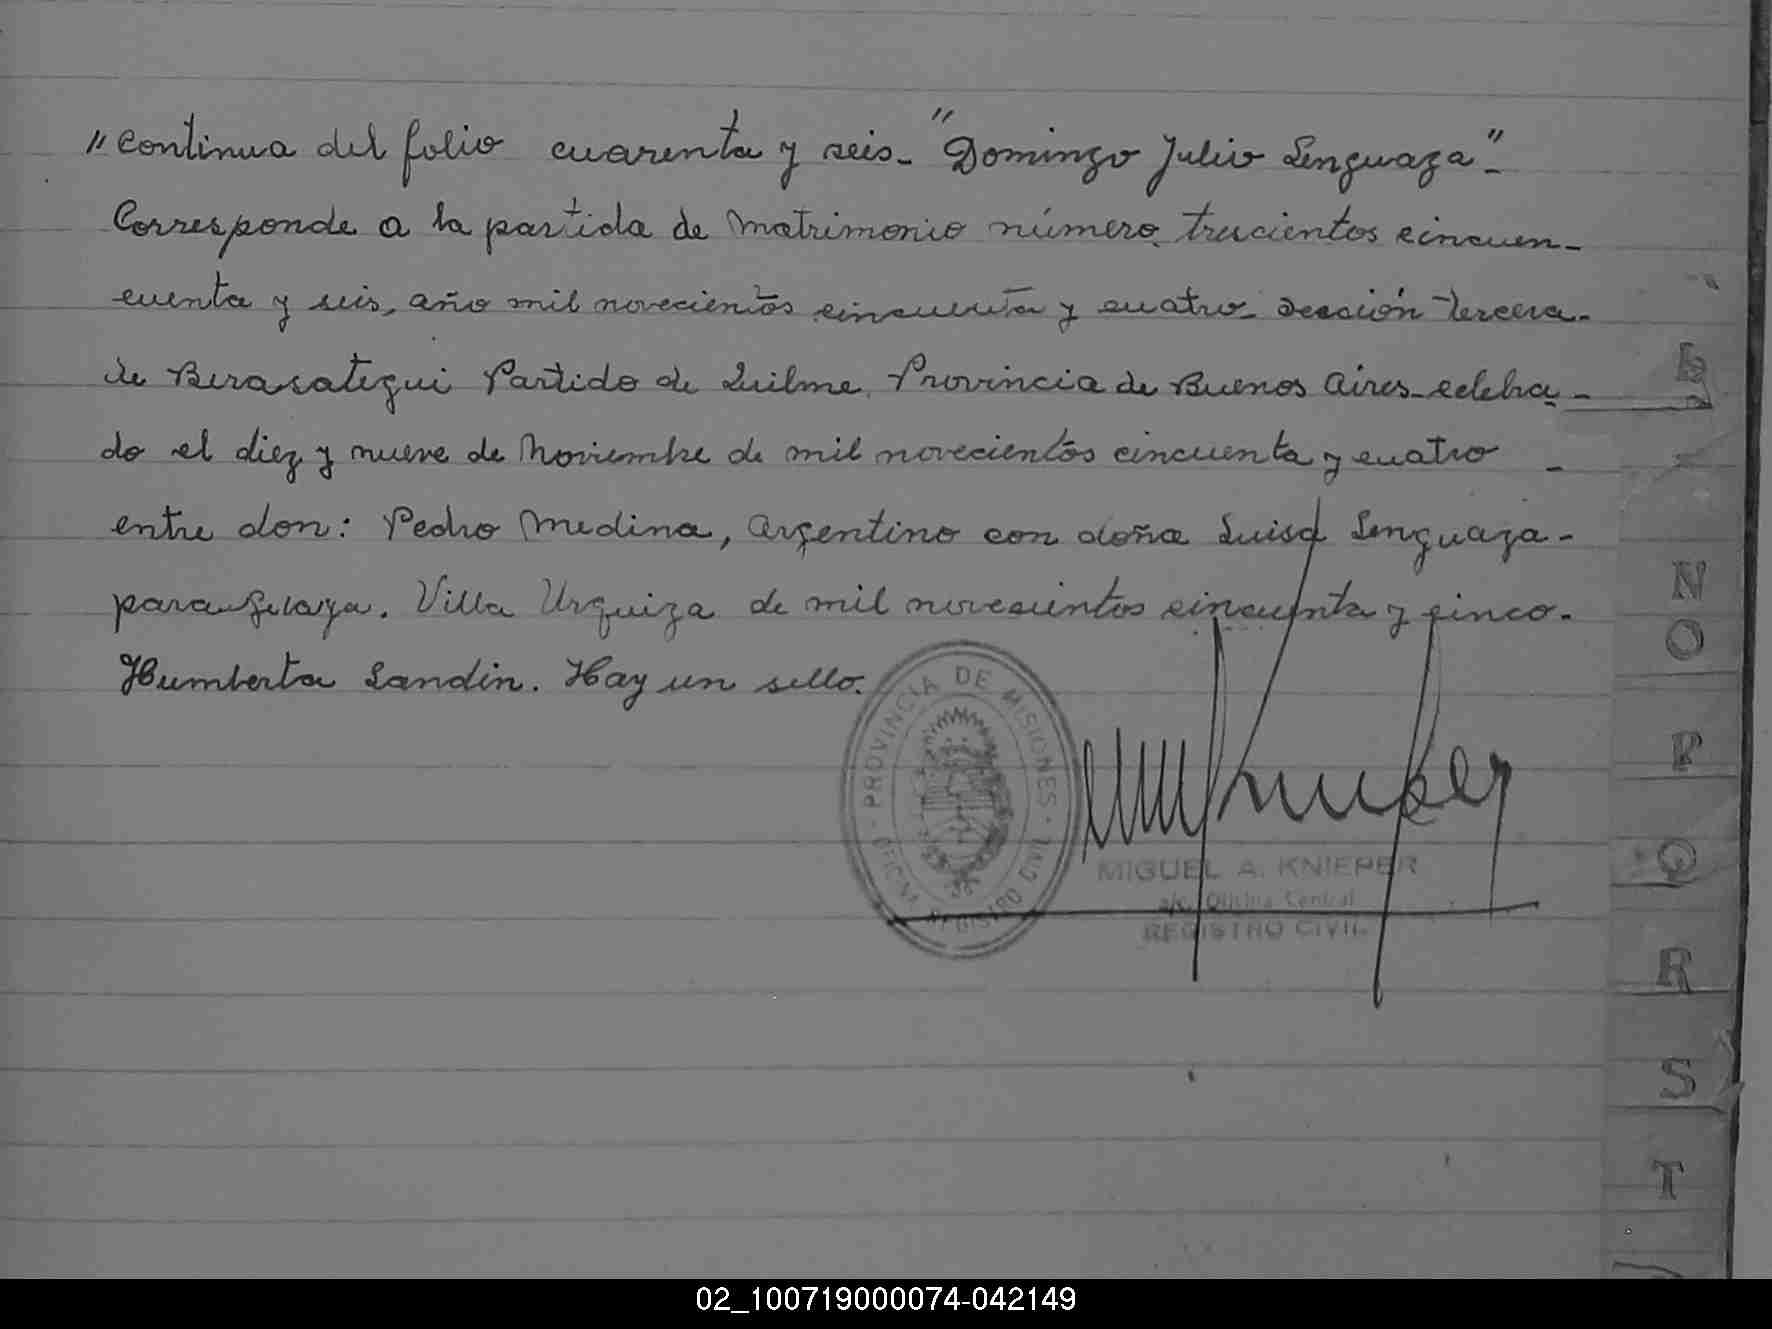 "Continua del folio cuarenta y seis- "Domingo Julio Lenguaza"-
Corresponde a la partida de Matrimonio número trecientos cincuen-
cuenta y seis, año mil novecientos cincuenta y cuatro- sección tercera-
de Berasategui Partido de Quilme. Provincia de Buenos Aires-celebra-
do el diez y nueve de Noviembre de mil novecientos cincuenta y cuatro -
entre don: Pedro Medina, Argentino con doña Luisa Lenguaza-
paraguaya. Villa Urquiza de mil novecientos cincuenta y cinco.
Humberta Landin. Hay un sello.
PROVINCIA DE MISIONES
OFICINA REGISTRO CIVIL
MIGUEL A. KNIEPER
a/c. Oficina Central
REGISTRO CIVIL
N
O
P
Q
R
S
T
02_100719000074-042149